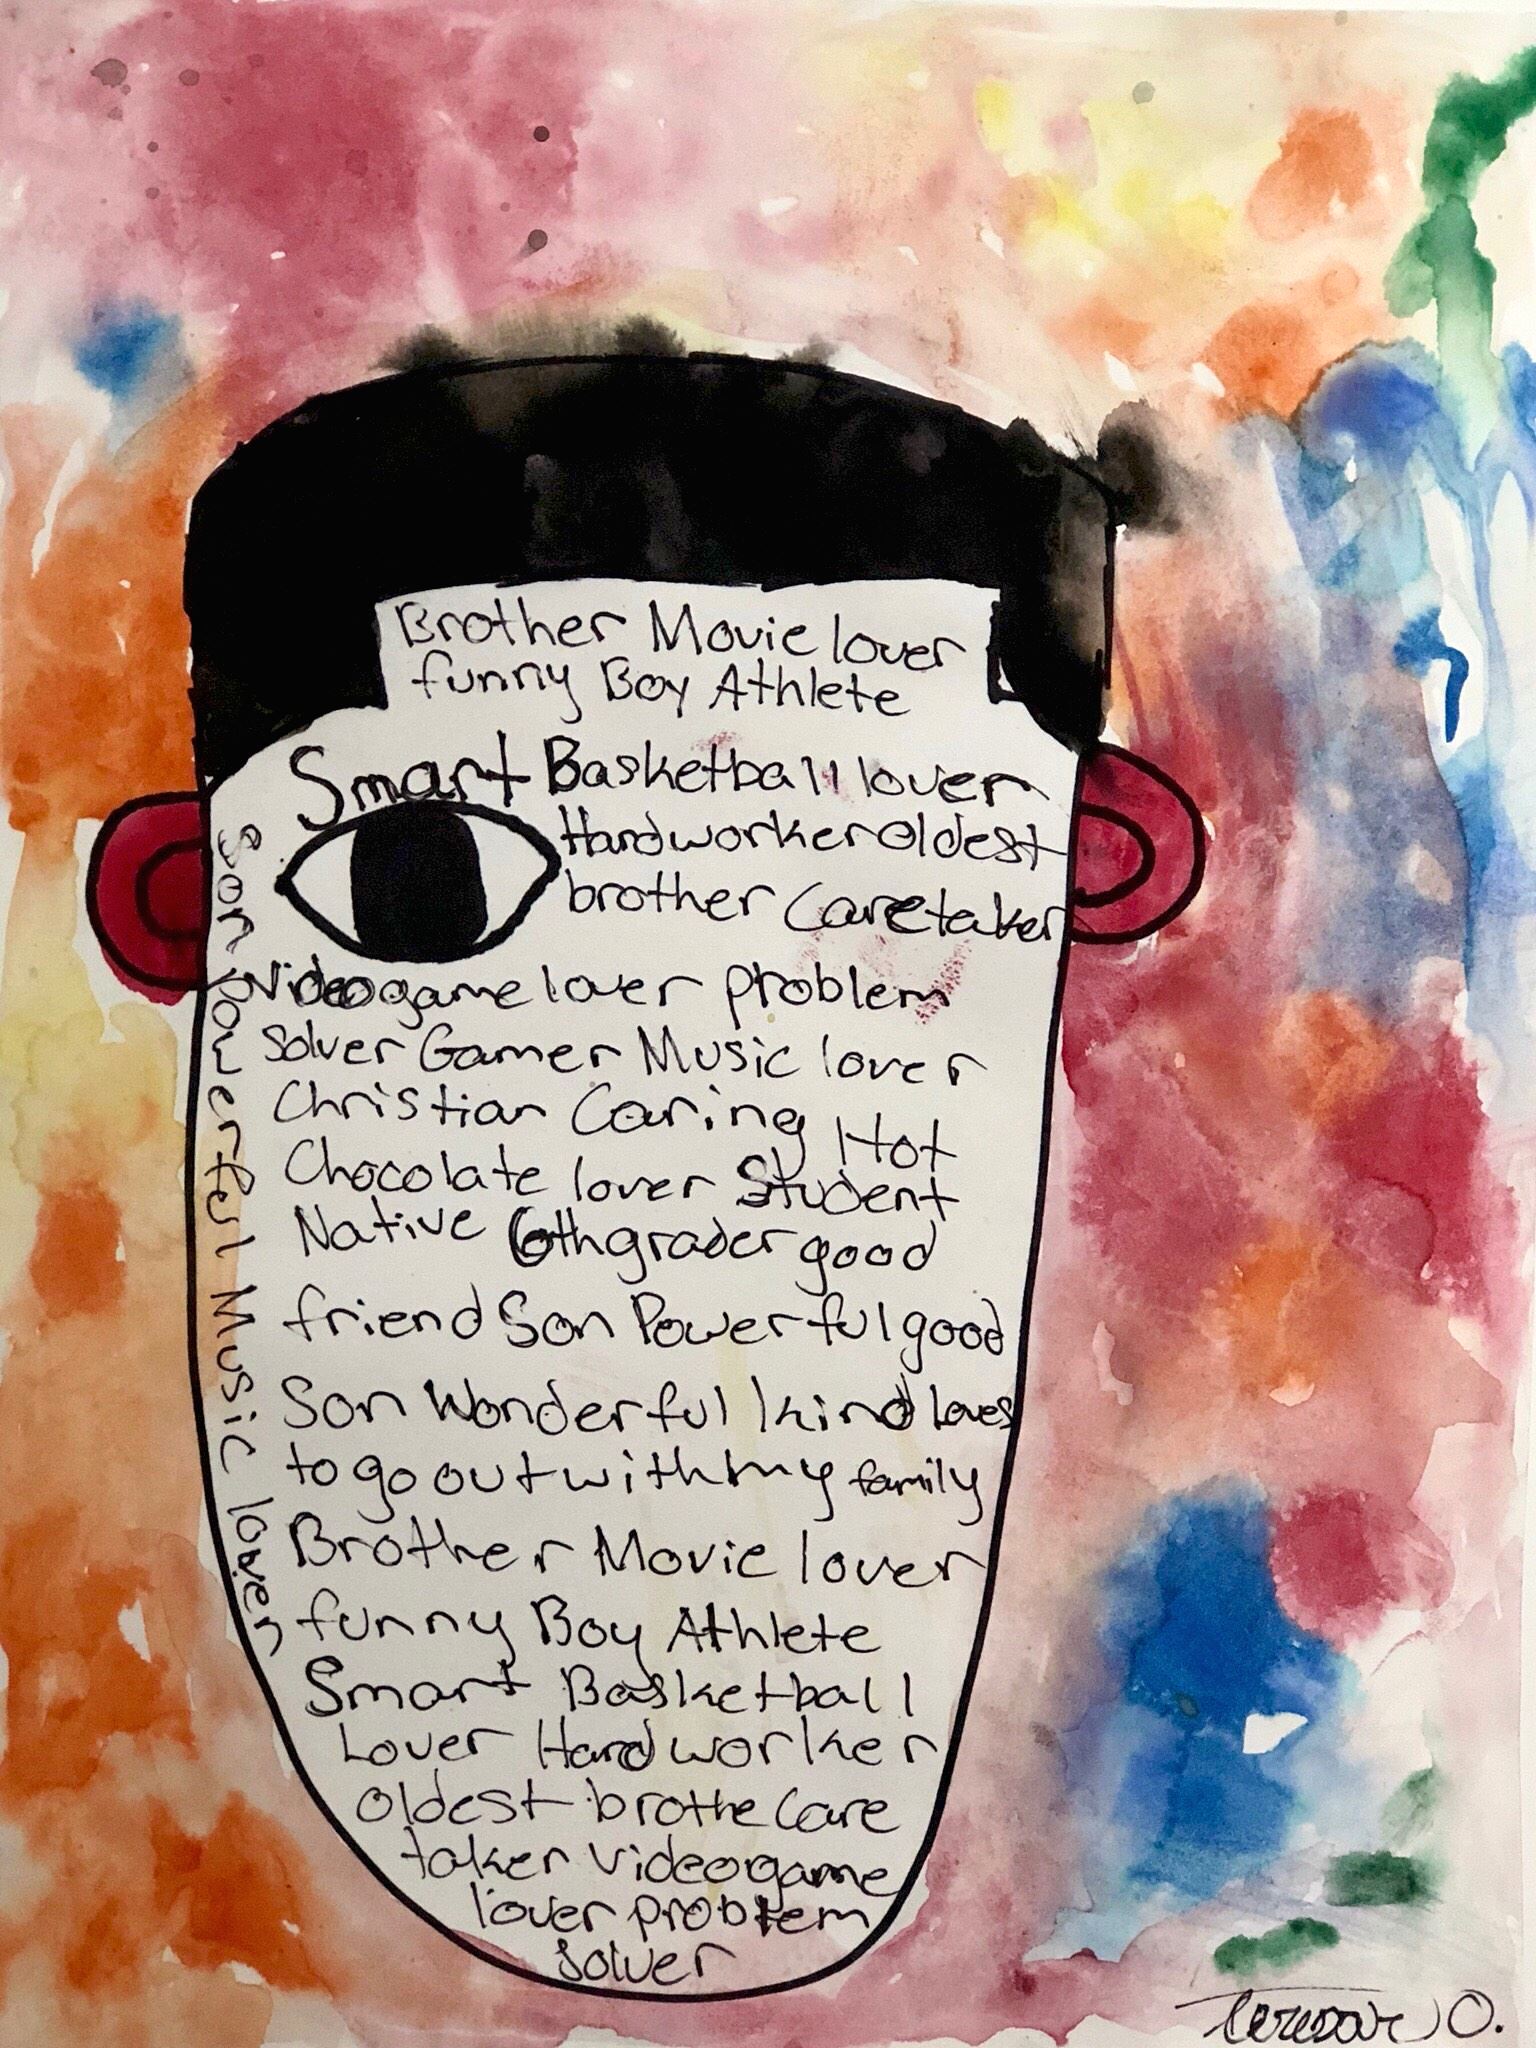 Brother Movie lover
funny Boy Athlete
Smart Basketball lover
Hardworker Oldest
brother Caretaker
Videogame lover problem
Solver Gamer Music lover
Christian Caring Hot
Chocolate lover Student
Native 6thgrader good
friend Son Powerful good
Son Wonderful kind loves
to go out with my family
Brother Movie lover
funny Boy Athlete
Smart Basketball
Lover Hardworker
oldest brothe Care
taker videogame
lover problem
solver
Son powerful Music lover
O.